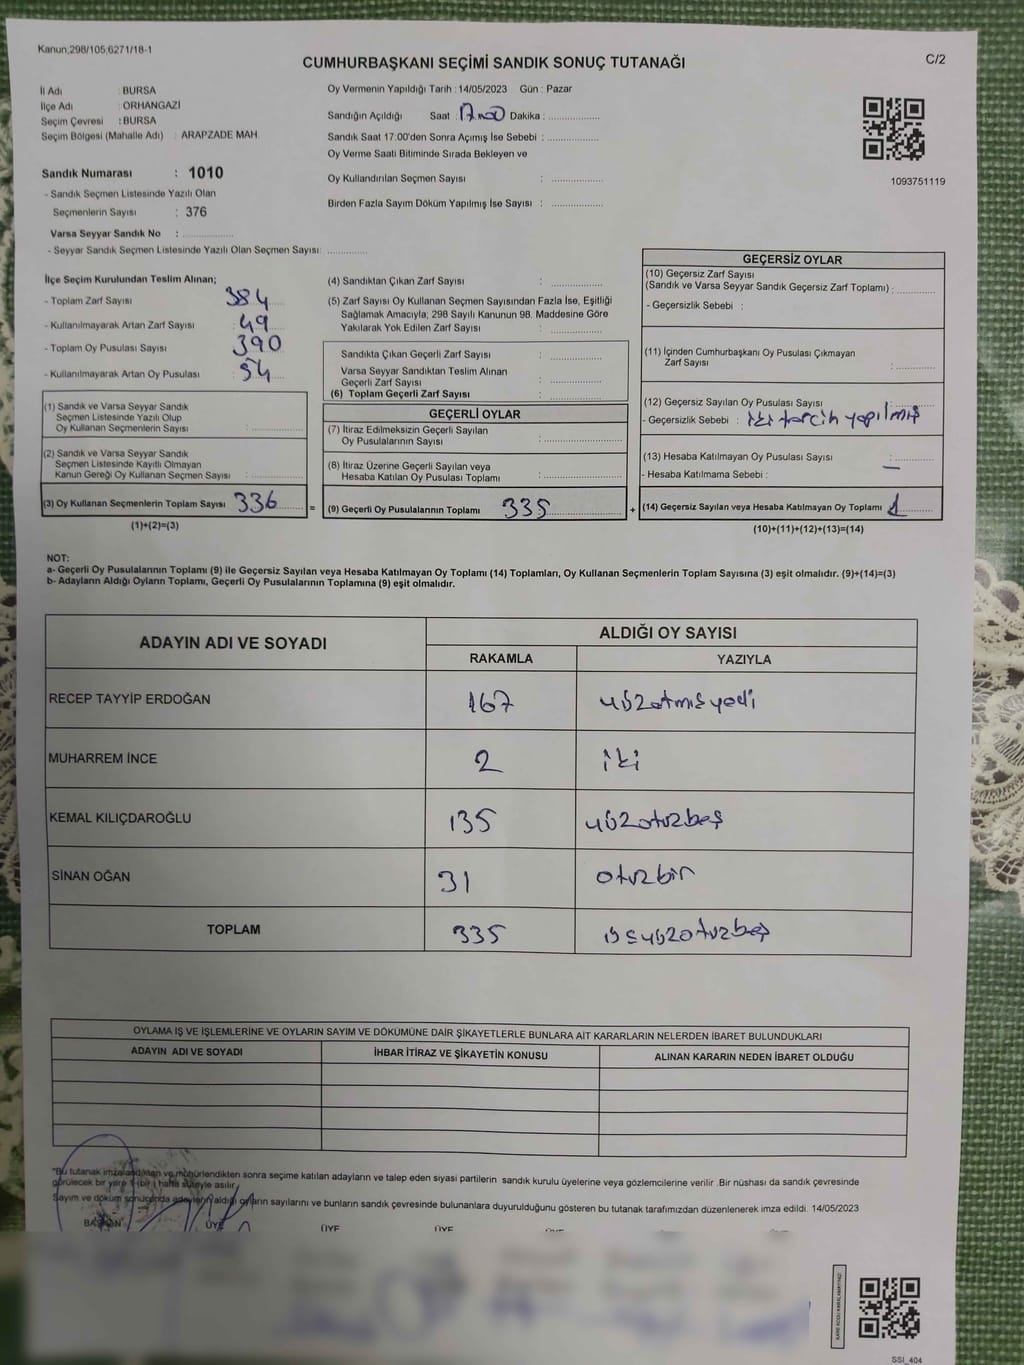 Kanun;298/105,6271/18-1
CUMHURBAŞKANI SEÇİMİ SANDIK SONUÇ TUTANAĞI
C/2
İl Adı : BURSA
İlçe Adı : ORHANGAZİ
Seçim Çevresi : BURSA
Seçim Bölgesi (Mahalle Adı) : ARAPZADE MAH.
Sandık Numarası : 1010
- Sandık Seçmen Listesinde Yazılı Olan
Seçmenlerin Sayısı : 376
Varsa Seyyar Sandık No : ..............
- Seyyar Sandık Seçmen Listesinde Yazılı Olan Seçmen Sayısı: ............
Oy Vermenin Yapıldığı Tarih : 14/05/2023 Gün : Pazar
Sandığın Açıldığı Saat : 17:00 Dakika : ................
Sandık Saat 17:00'den Sonra Açımış İse Sebebi : ................
Oy Verme Saati Bitiminde Sırada Bekleyen ve
Oy Kullandırılan Seçmen Sayısı : ................
Birden Fazla Sayım Döküm Yapılmış İse Sayısı : ................
1093751119
İlçe Seçim Kurulundan Teslim Alınan;
- Toplam Zarf Sayısı : 384
- Kullanılmayarak Artan Zarf Sayısı : 49
- Toplam Oy Pusulası Sayısı : 390
- Kullanılmayarak Artan Oy Pusulası : 54
(1) Sandık ve Varsa Seyyar Sandık
Seçmen Listesinde Yazılı Olup
Oy Kullanan Seçmenlerin Sayısı : ................
(2) Sandık ve Varsa Seyyar Sandık
Seçmen Listesinde Kayıtlı Olmayan
Kanun Gereği Oy Kullanan Seçmen Sayısı : ................
(3) Oy Kullanan Seçmenlerin Toplam Sayısı 336
(1)+(2)=(3)
=
(4) Sandıktan Çıkan Zarf Sayısı : ................
(5) Zarf Sayısı Oy Kullanan Seçmen Sayısından Fazla İse, Eşitliği
Sağlamak Amacıyla; 298 Sayılı Kanunun 98. Maddesine Göre
Yakılarak Yok Edilen Zarf Sayısı : ................
Sandıkta Çıkan Geçerli Zarf Sayısı : ................
Varsa Seyyar Sandıktan Teslim Alınan
Geçerli Zarf Sayısı : ................
(6) Toplam Geçerli Zarf Sayısı : ................
GEÇERLİ OYLAR
(7) İtiraz Edilmeksizin Geçerli Sayılan
Oy Pusulalarının Sayısı : ................
(8) İtiraz Üzerine Geçerli Sayılan veya
Hesaba Katılan Oy Pusulası Toplamı : ................
(9) Geçerli Oy Pusulalarının Toplamı 335
+
GEÇERSİZ OYLAR
(10) Geçersiz Zarf Sayısı
(Sandık ve Varsa Seyyar Sandık Geçersiz Zarf Toplamı) : ............
- Geçersizlik Sebebi :
(11) İçinden Cumhurbaşkanı Oy Pusulası Çıkmayan
Zarf Sayısı : ............
(12) Geçersiz Sayılan Oy Pusulası Sayısı : ............
- Geçersizlik Sebebi : iki tercih yapılmış
(13) Hesaba Katılmayan Oy Pusulası Sayısı : ............
- Hesaba Katılmama Sebebi : –
(14) Geçersiz Sayılan veya Hesaba Katılmayan Oy Toplamı 1
(10)+(11)+(12)+(13)=(14)
NOT:
a- Geçerli Oy Pusulalarının Toplamı (9) ile Geçersiz Sayılan veya Hesaba Katılmayan Oy Toplamı (14) Toplamları, Oy Kullanan Seçmenlerin Toplam Sayısına (3) eşit olmalıdır. (9)+(14)=(3)
b- Adayların Aldığı Oyların Toplamı, Geçerli Oy Pusulalarının Toplamına (9) eşit olmalıdır.
ADAYIN ADI VE SOYADI
ALDIĞI OY SAYISI
RAKAMLA YAZIYLA
RECEP TAYYİP ERDOĞAN 167 yüzatmışyedi
MUHARREM İNCE 2 iki
KEMAL KILIÇDAROĞLU 135 yüzotuzbeş
SİNAN OĞAN 31 otuzbir
TOPLAM 335 üçyüzotuzbeş
OYLAMA İŞ VE İŞLEMLERİNE VE OYLARIN SAYIM VE DÖKÜMÜNE DAİR ŞİKAYETLERLE BUNLARA AİT KARARLARIN NELERDEN İBARET BULUNDUKLARI
ADAYIN ADI VE SOYADI İHBAR İTİRAZ VE ŞİKAYETİN KONUSU ALINAN KARARIN NEDEN İBARET OLDUĞU
"Bu tutanak imzalandıkten ve mühürlendikten sonra seçime katılan adayların ve talep eden siyasi partilerin sandık kurulu üyelerine veya gözlemcilerine verilir .Bir nüshası da sandık çevresinde
görülecek bir yere 1 (bir ) hafta süreyle asılır.
Sayım ve döküm sonucunda adayların aldığı oyların sayılarını ve bunların sandık çevresinde bulunanlara duyurulduğunu gösteren bu tutanak tarafımızdan düzenlenerek imza edildi. 14/05/2023
BAŞKAN ÜYE ÜYE ÜYE
SSI_404